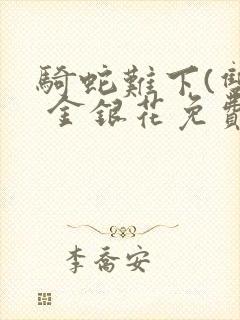 騎蛇難下(雙
金銀花免費
李喬安